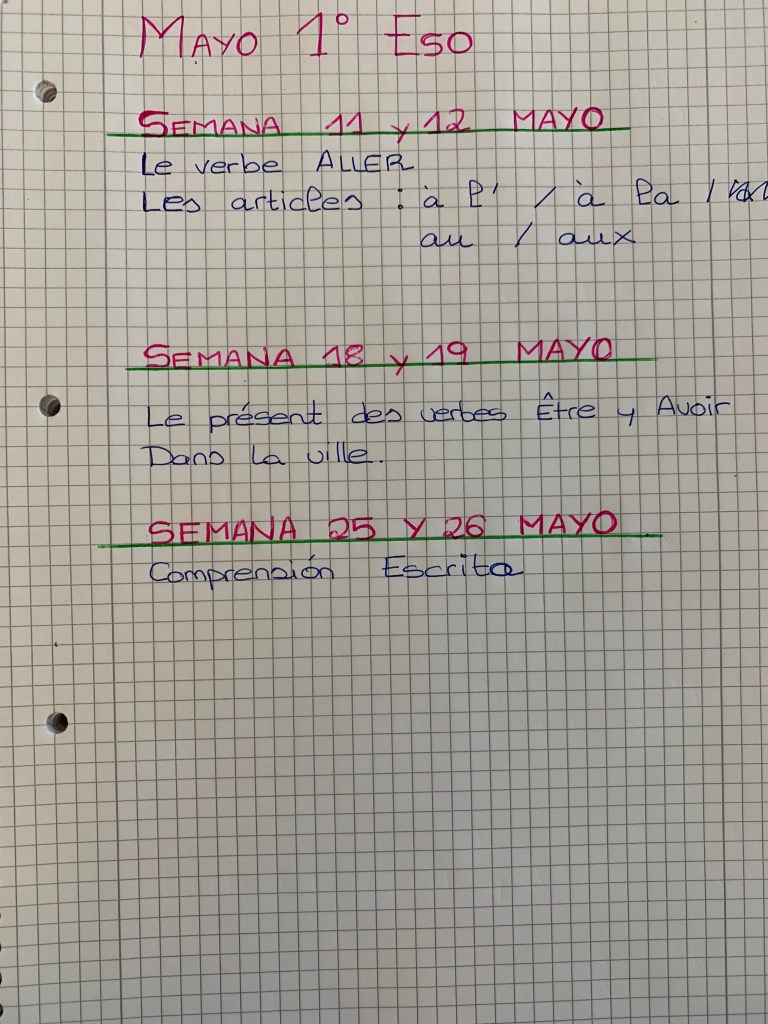 MAYO 1º ESO
SEMANA 11 y 12 MAYO
Le verbe ALLER
Les articles : à l' / à la /
au / aux
SEMANA 18 y 19 MAYO
Le présent des verbes Être y Avoir
Dans la ville.
SEMANA 25 Y 26 MAYO
Comprensión Escrita